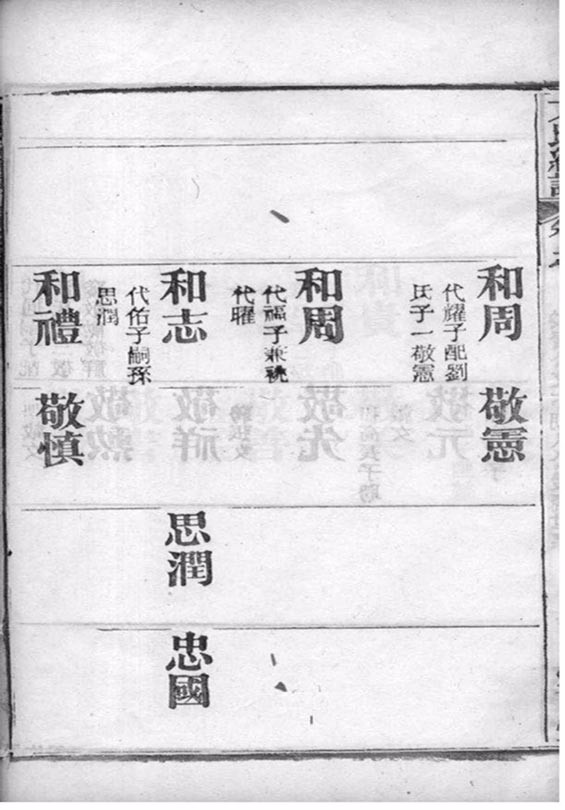 和周
代耀子配劉
氏子一敬憲
敬憲
和周
代福子兼祧
代曜
和志
代佑子嗣孫
思潤
思潤
忠國
和禮
敬慎